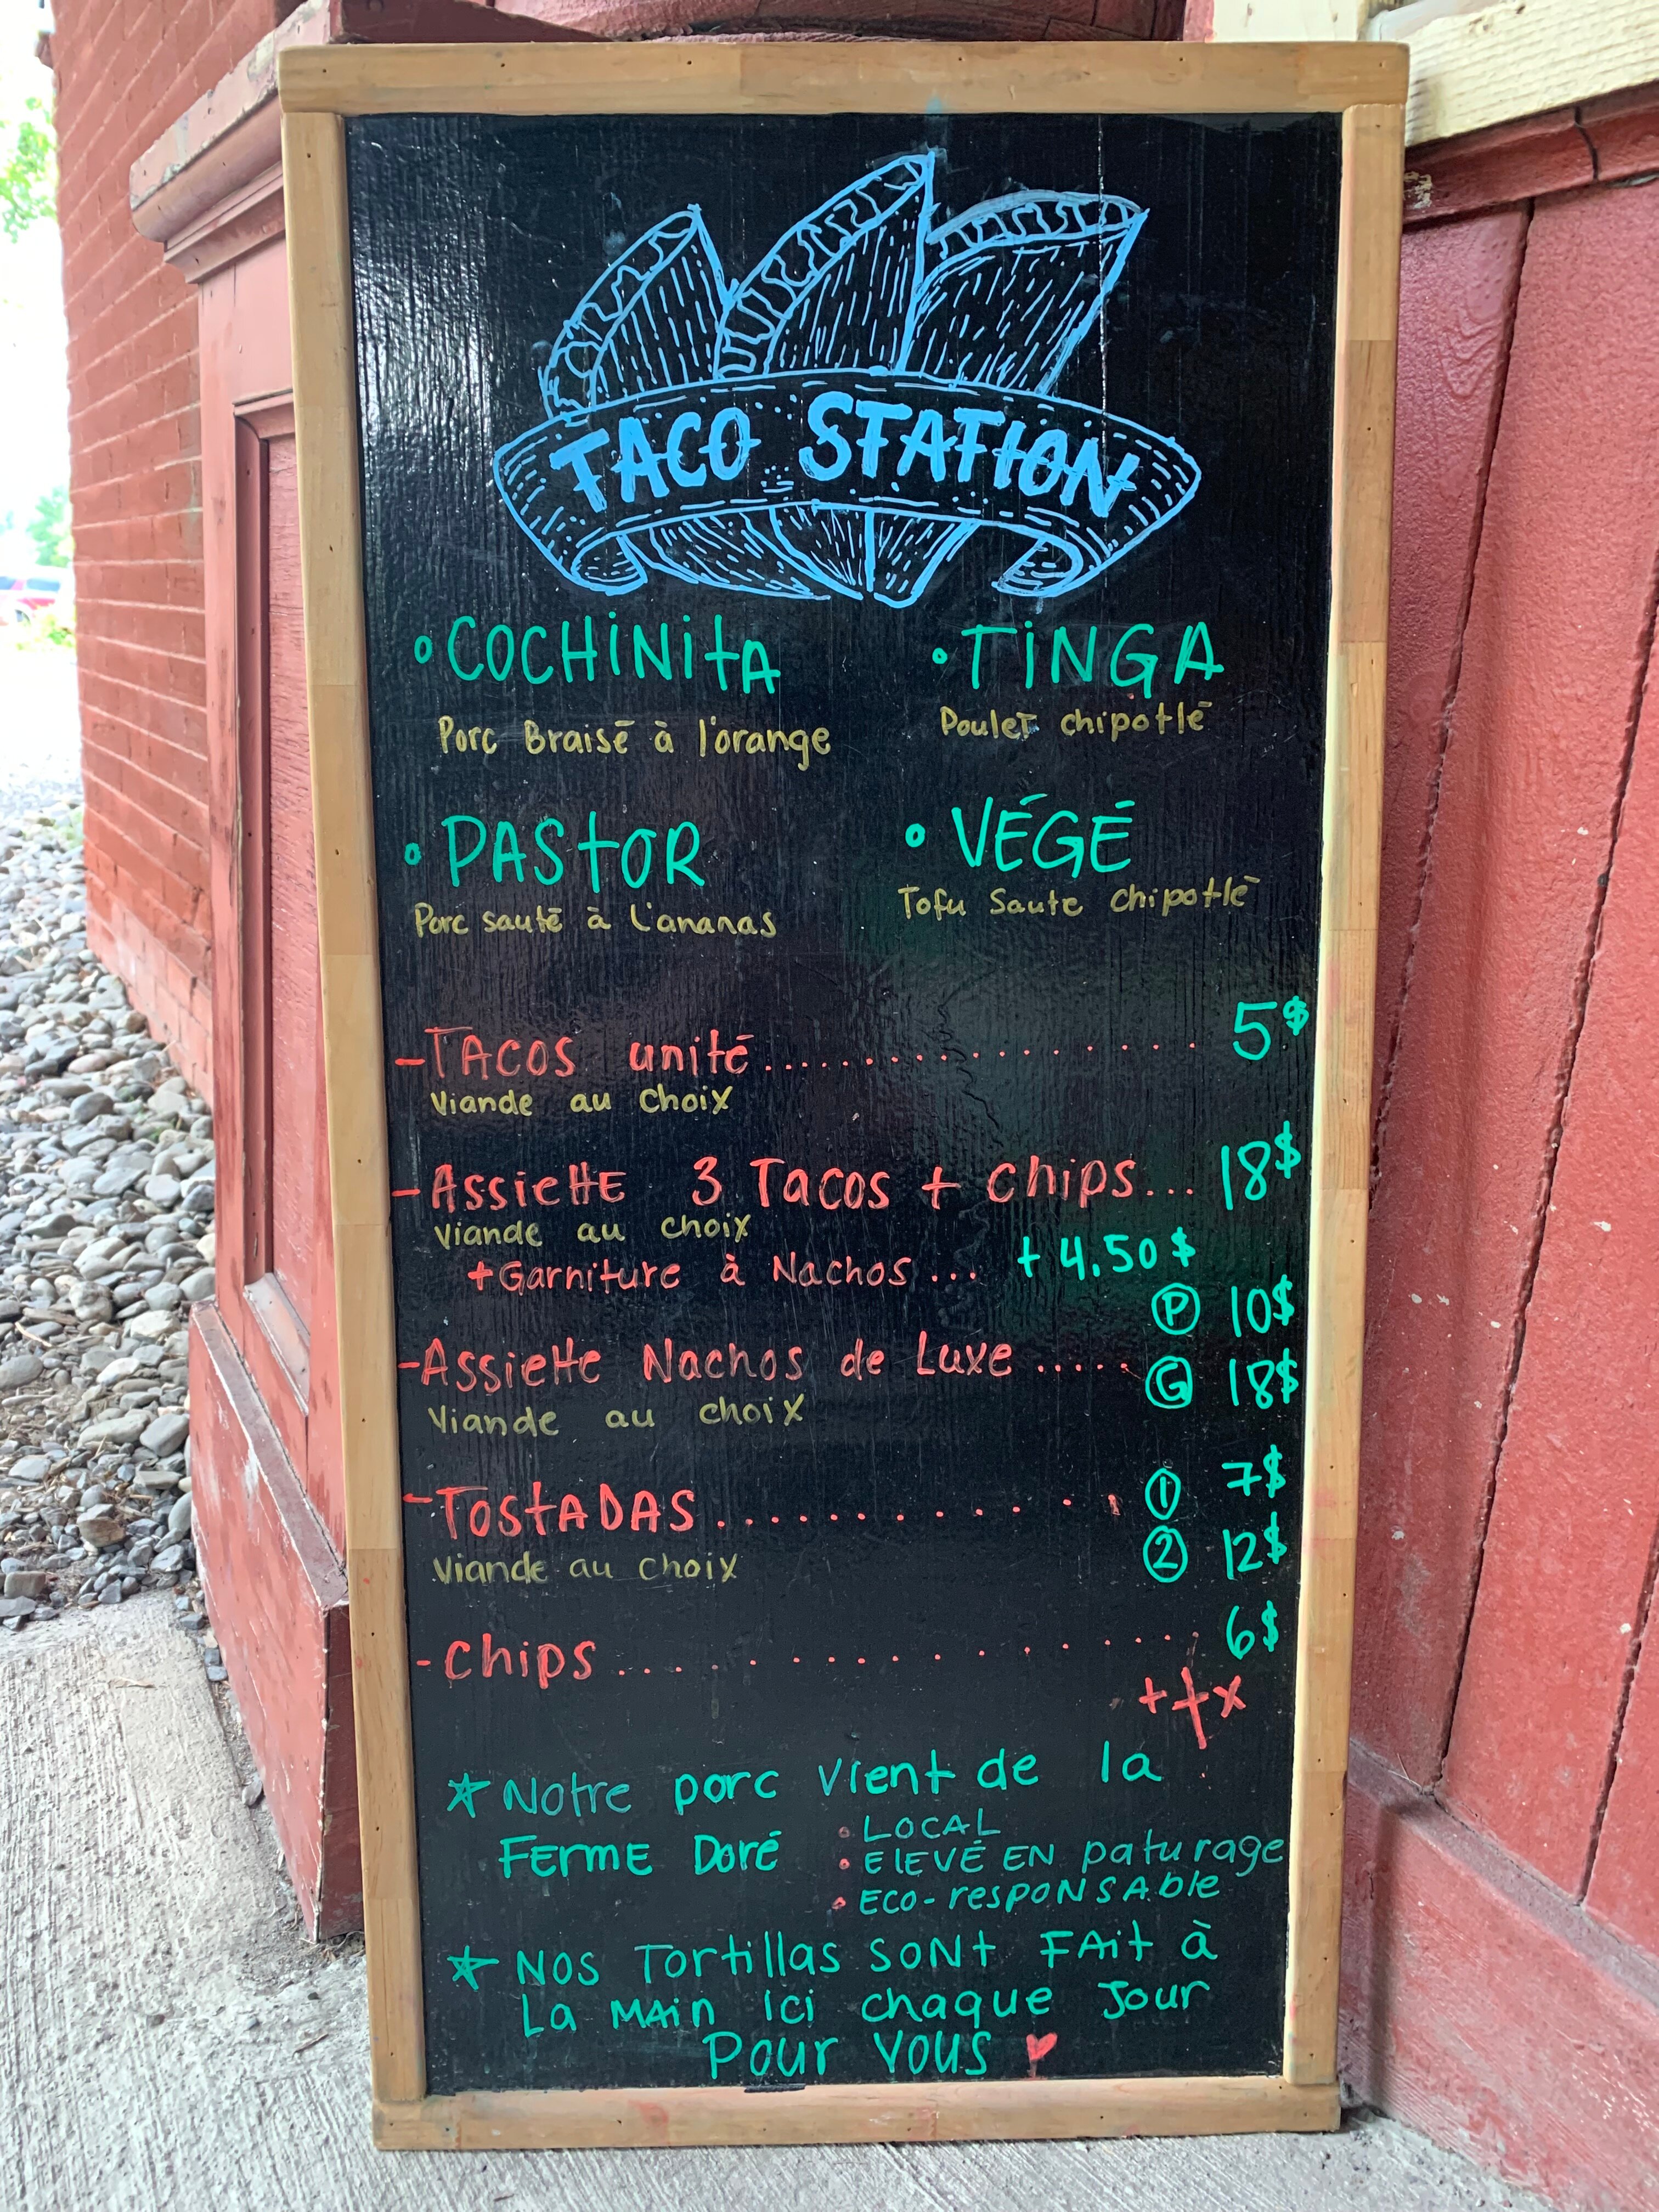 TACO STATION
• COCHINITA
Porc Braisé à l'orange
• TINGA
Poulet chipotlé
• PASTOR
Porc sauté à L'ananas
• VÉGÉ
Tofu Saute chipotlé
- TACOS unité................ 5$
Viande au choix
- ASSIETTE 3 Tacos + chips... 18$
Viande au choix
+ Garniture à Nachos... + 4.50$
- Assiette Nachos de Luxe..... Ⓟ 10$
Ⓖ 18$
Viande au choix
- TOSTADAS............ ① 7$
② 12$
Viande au choix
- chips............... 6$
+tx
★ Notre porc vient de la
FERME Doré
• LOCAL
• ELEVÉ EN paturage
• ECO-responsable
★ NOS Tortillas SONT FAit à
La MAin ici chaque Jour
Pour Vous ♥